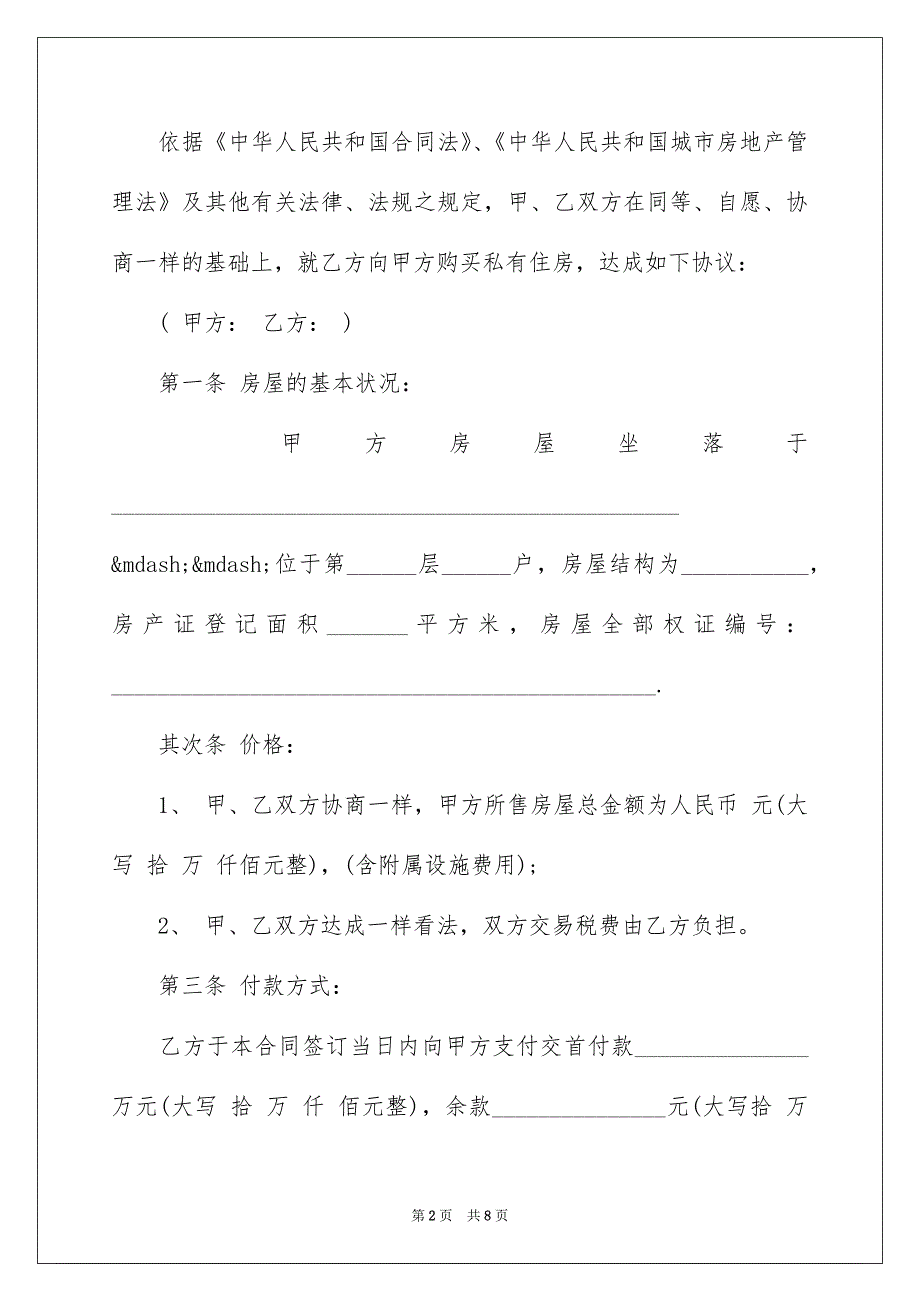 依据《中华人民共和国合同法》、《中华人民共和国城市房地产管
理法》及其他有关法律、法规之规定，甲、乙双方在同等、自愿、协
商一样的基础上，就乙方向甲方购买私有住房，达成如下协议：
( 甲方： 乙方： )
第一条 房屋的基本状况：
甲方房屋坐落于
_________________________________________________
&mdash;&mdash;位于第______层______户，房屋结构为___________，
房产证登记面积_______平方米，房屋全部权证编号：
_______________________________________________.
其次条 价格：
1、 甲、乙双方协商一样，甲方所售房屋总金额为人民币 元(大
写 拾 万 仟佰元整)，(含附属设施费用);
2、 甲、乙双方达成一样看法，双方交易税费由乙方负担。
第三条 付款方式：
乙方于本合同签订当日内向甲方支付交首付款_______________
万元(大写 拾 万 仟 佰元整)，余款_______________元(大写拾 万
第 2 页 共 8 页